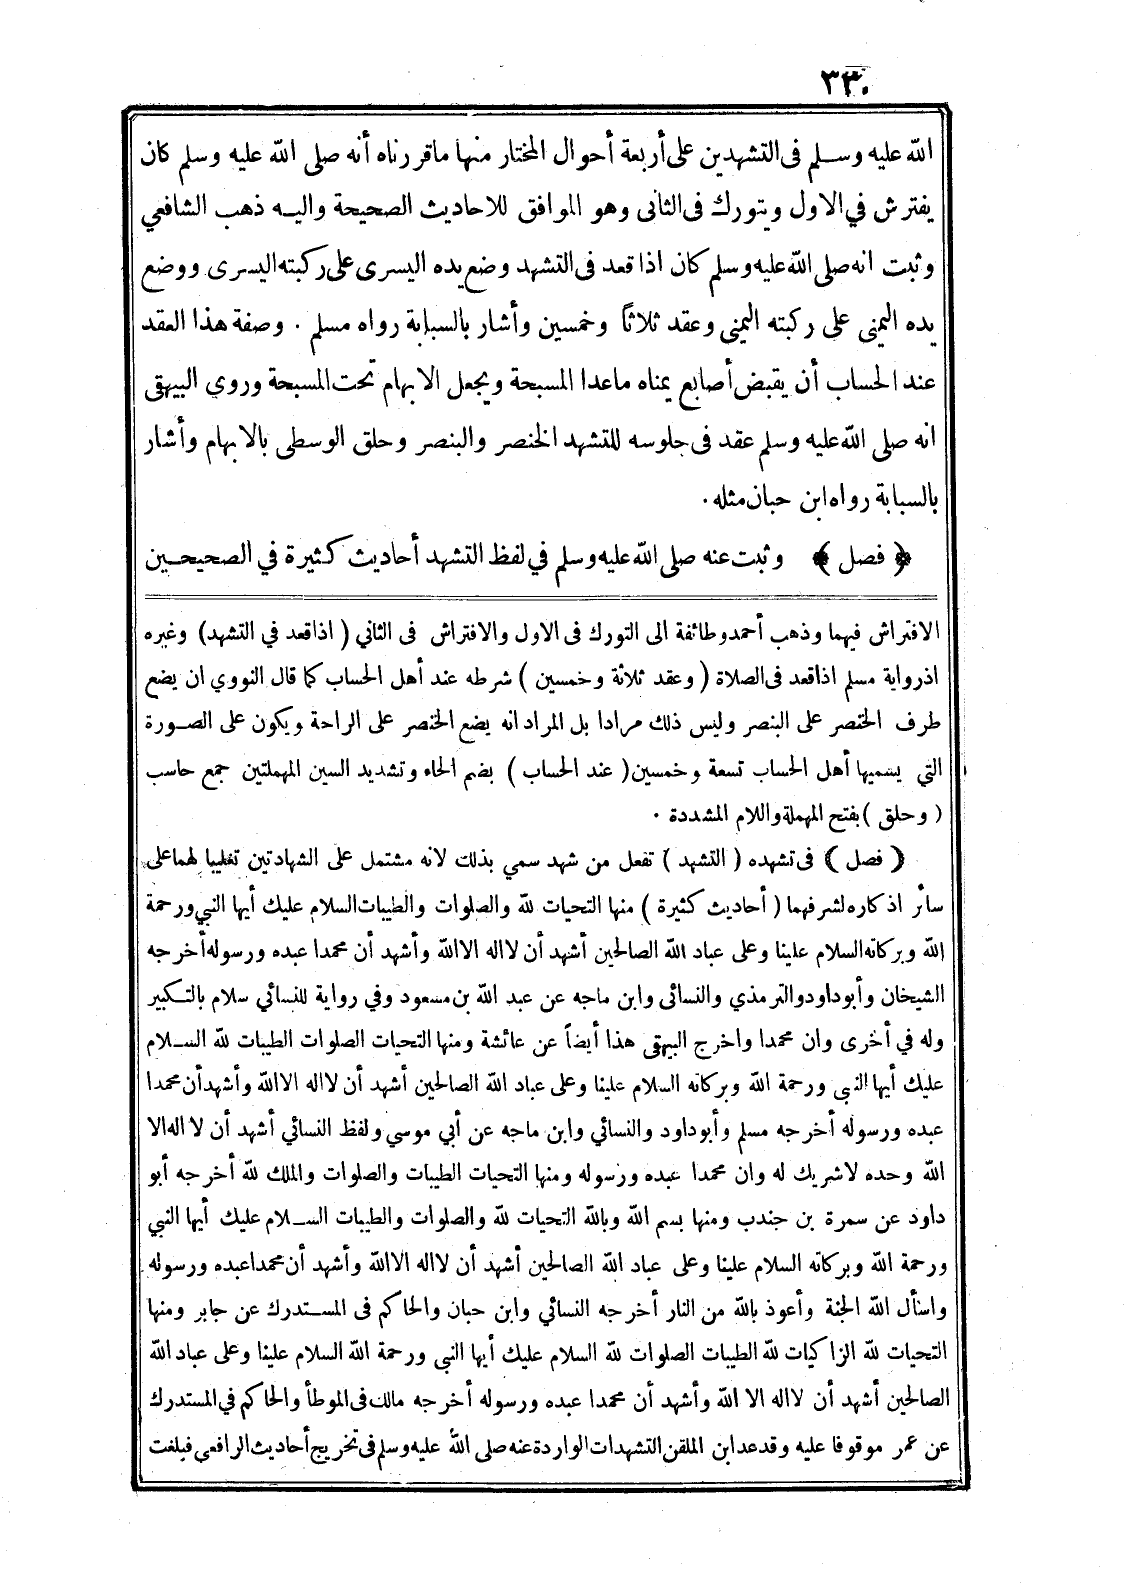 ٣٣٠
الله عليه وسلم فى التشهدين على أربعة أحوال المختار منها ماقررناه أنه صلى الله عليه وسلم كان
يفترش في الاول ويتورك فى الثانى وهو الموافق للاحاديث الصحيحة واليه ذهب الشافعي
وثبت انه صلى الله عليه وسلم كان اذا قعد فى التشهد وضع يده اليسرى على ركبته اليسرى ووضع
يده اليمنى على ركبته اليمنى وعقد ثلاثاً وخمسين وأشار بالسبابة رواه مسلم . وصفة هذا العقد
عند الحساب أن يقبض أصابع يمناه ماعدا المسبحة ويجعل الابهام تحت المسبحة وروي البيهقى
انه صلى الله عليه وسلم عقد فى جلوسه للتشهد الخنصر والبنصر وحلق الوسطى بالابهام وأشار
بالسبابة رواه ابن حبان مثله .
﴿ فصل ﴾ وثبت عنه صلى الله عليه وسلم في لفظ التشهد أحاديث كثيرة في الصحيحين
الافتراش فيهما وذهب أحمد وطائفة الى التورك فى الاول والافتراش فى الثاني ( اذاقعد في التشهد) وغيره
اذ رواية مسلم اذاقعد فى الصلاة ( وعقد ثلاثة وخمسين ) شرطه عند أهل الحساب كما قال النووي ان يضع
طرف الخنصر على البنصر وليس ذلك مرادا بل المراد انه يضع الخنصر على الراحة ويكون على الصورة
التي يسميها أهل الحساب تسعة وخمسين ( عند الحساب ) بضم الحاء وتشديد السين المهملتين جمع حاسب
( وحلق ) بفتح المهملة واللام المشددة .
﴿ فصل ﴾ فى تشهده ( التشهد ) تفعل من شهد سمي بذلك لانه مشتمل على الشهادتين تغليبا لهما على
سائر اذ كاره لشرفهما ( أحاديث كثيرة ) منها التحيات لله والصلوات والطيبات السلام عليك أيها النبي ورحمة
الله وبركاته السلام علينا وعلى عباد الله الصالحين أشهد أن لااله الاالله وأشهد أن محمدا عبده ورسوله أخرجه
الشيخان وأبوداود والترمذي والنسائى وابن ماجه عن عبد الله بن مسعود وفي رواية للنسائي سلام بالتنكير
وله في أخرى وان محمدا واخرج البيهقى هذا أيضاً عن عائشة ومنها التحيات الصلوات الطيبات لله السلام
عليك أيها النبى ورحمة الله وبركاته السلام علينا وعلى عباد الله الصالحين أشهد أن لااله الاالله وأشهد أن محمدا
عبده ورسوله أخرجه مسلم وأبوداود والنسائي وابن ماجه عن أبي موسي ولفظ النسائي أشهد أن لااله الا
الله وحده لاشريك له وان محمدا عبده ورسوله ومنها التحيات الطيبات والصلوات والملك لله أخرجه أبو
داود عن سمرة بن جندب ومنها بسم الله وبالله التحيات لله والصلوات والطيبات السلام عليك أيها النبي
ورحمة الله وبركاته السلام علينا وعلى عباد الله الصالحين أشهد أن لااله الاالله وأشهد أن محمدا عبده ورسوله
واسأل الله الجنة وأعوذ بالله من النار أخرجه النسائي وابن حبان والحاكم فى المستدرك عن جابر ومنها
التحيات لله الزاكيات لله الطيبات الصلوات لله السلام عليك أيها النبي ورحمة الله السلام علينا وعلى عباد الله
الصالحين أشهد أن لااله الا الله وأشهد أن محمدا عبده ورسوله أخرجه مالك فى الموطأ والحاكم في المستدرك
عن عمر موقوفا عليه وقد عد ابن الملقن التشهدات الواردة عنه صلى الله عليه وسلم فى تخريج أحاديث الرافعى فبلغت